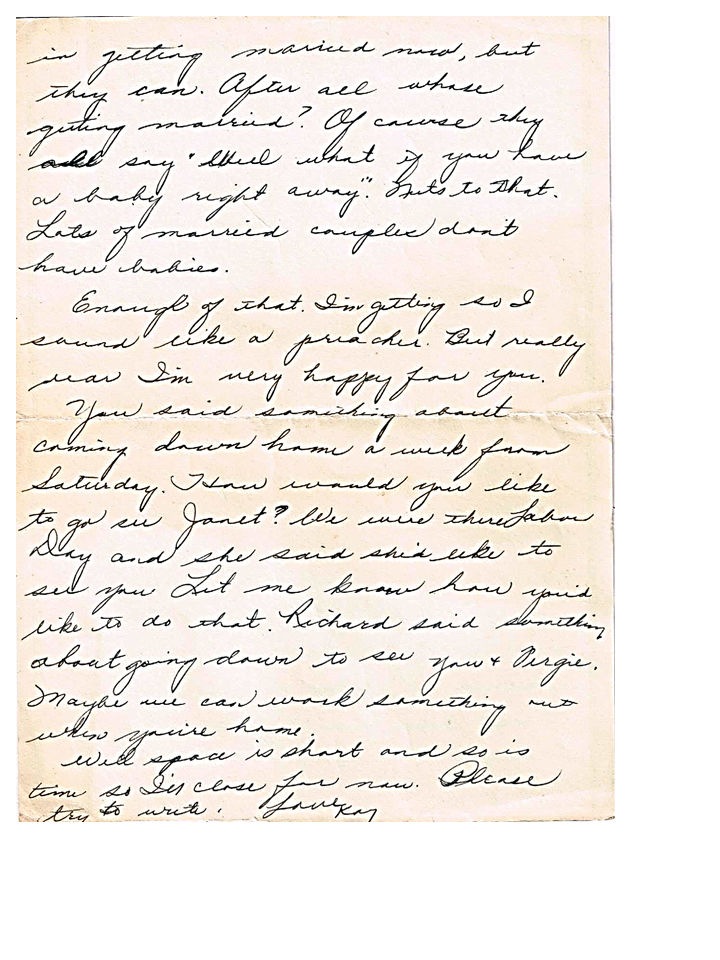 in getting married now, but
they can. After all whose
getting married? Of course they
all say "Well what if you have
a baby right away". Nuts to that.
Lots of married couples don't
have babies.
Enough of that. I'm getting so I
sound like a preacher. But really
dear I'm very happy for you.
You said something about
coming down home a week from
Saturday. How would you like
to go see Janet? We were there Labor
Day and she said she'd like to
see you Let me know how you'd
like to do that. Richard said something
about going down to see you + Virgie.
Maybe we can work something out
when you're home.
Well space is short and so is
time so I'll close for now. Please
try to write. Love Kay